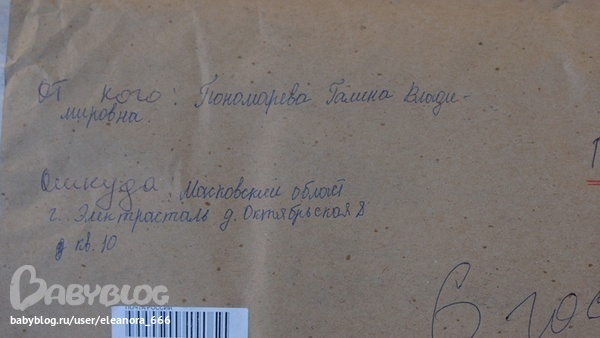 От кого: Пономарева Галина Влади-
мировна.
Откуда: Московский област
г. Электрасталь д. Октябрьская 8
кв. 10
BABYBLOG
babyblog.ru/user/eleanora_666